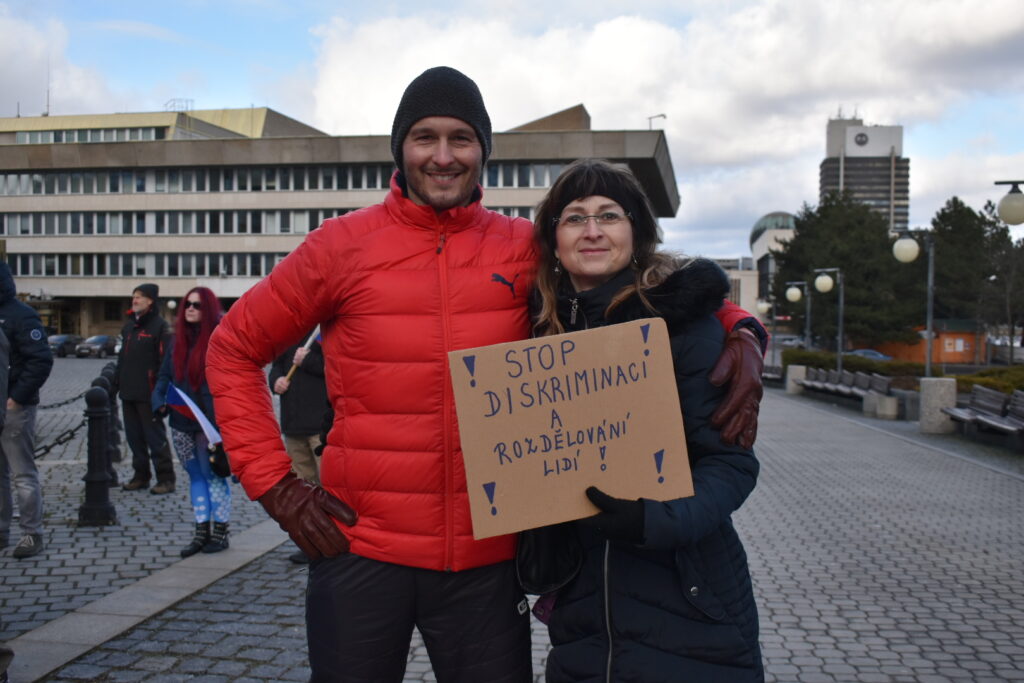 STOP
DISKRIMINACÍ
A
ROZDĚLOVÁNÍ
LIDÍ !